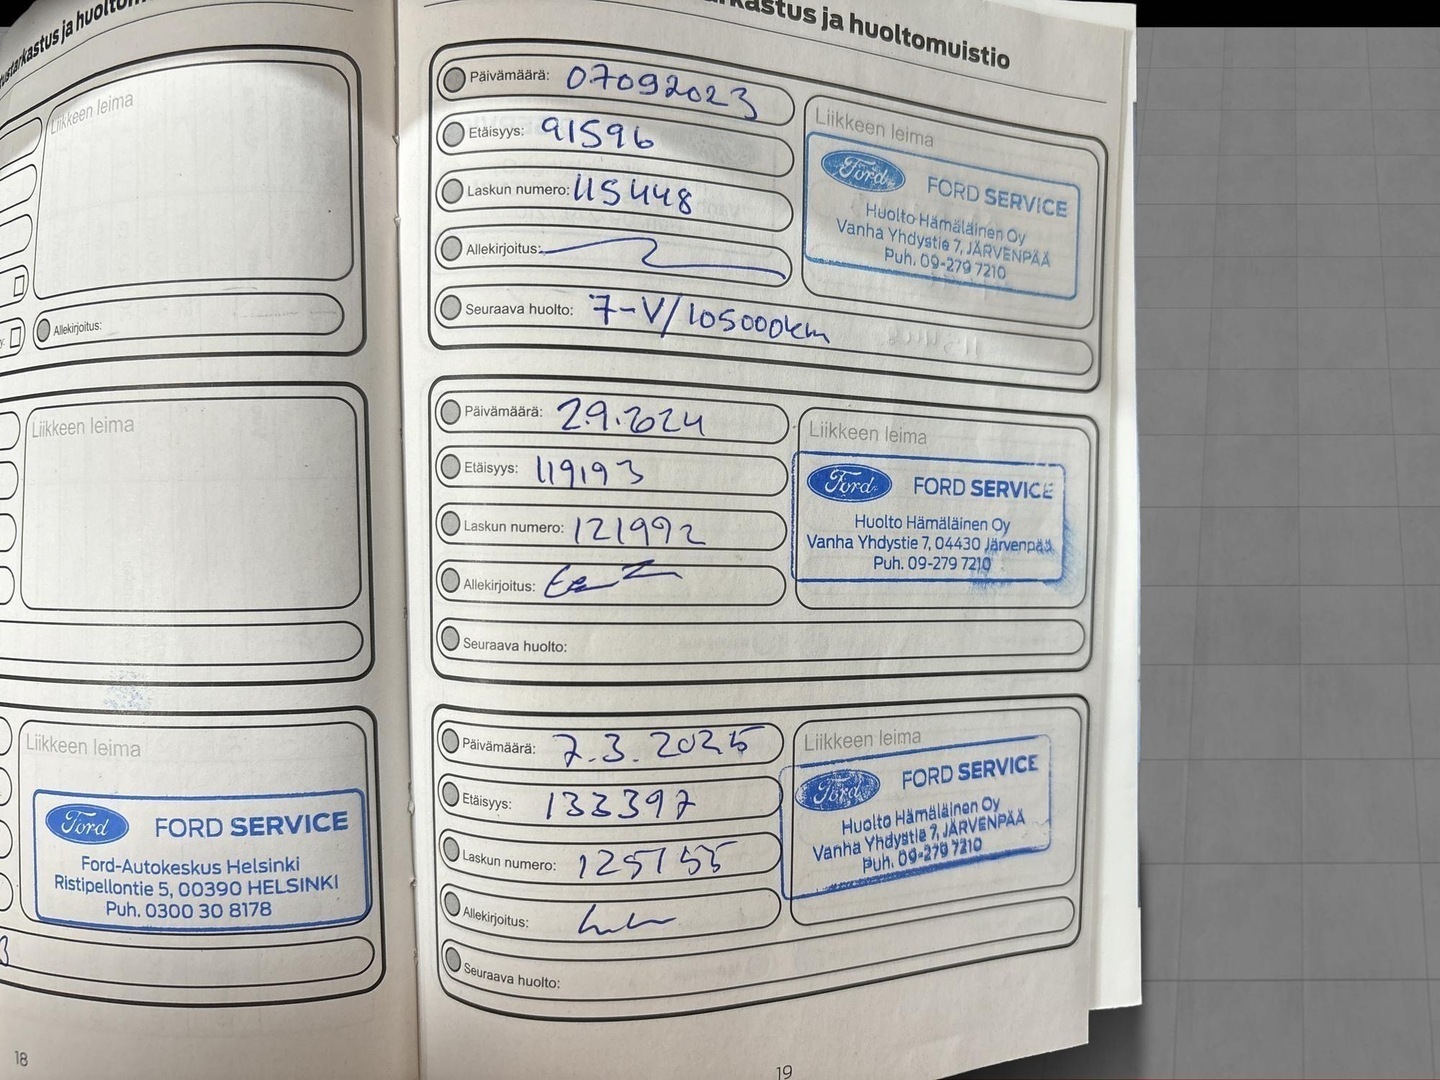 tustarkastus ja huoltom
Liikkeen leima
Allekirjoitus:
Liikkeen leima
Liikkeen leima
Ford
FORD SERVICE
Ford-Autokeskus Helsinki
Ristipellontie 5, 00390 HELSINKI
Puh. 0300 30 8178
18
arkastus ja huoltomuistio
Päivämäärä: 07092023
Etäisyys: 91596
Laskun numero: 115448
Allekirjoitus:
Seuraava huolto: 7-V/105000km
Liikkeen leima
Ford
FORD SERVICE
Huolto Hämäläinen Oy
Vanha Yhdystie 7, JÄRVENPÄÄ
Puh. 09-279 7210
Päivämäärä: 2.9.2024
Etäisyys: 119193
Laskun numero: 121992
Allekirjoitus:
Seuraava huolto:
Liikkeen leima
Ford
FORD SERVICE
Huolto Hämäläinen Oy
Vanha Yhdystie 7, 04430 Järvenpää
Puh. 09-279 7210
Päivämäärä: 7.3.2025
Etäisyys: 133397
Laskun numero: 125155
Allekirjoitus:
Seuraava huolto:
Liikkeen leima
Ford
FORD SERVICE
Huolto Hämäläinen Oy
Vanha Yhdystie 7, JÄRVENPÄÄ
Puh. 09-279 7210
19